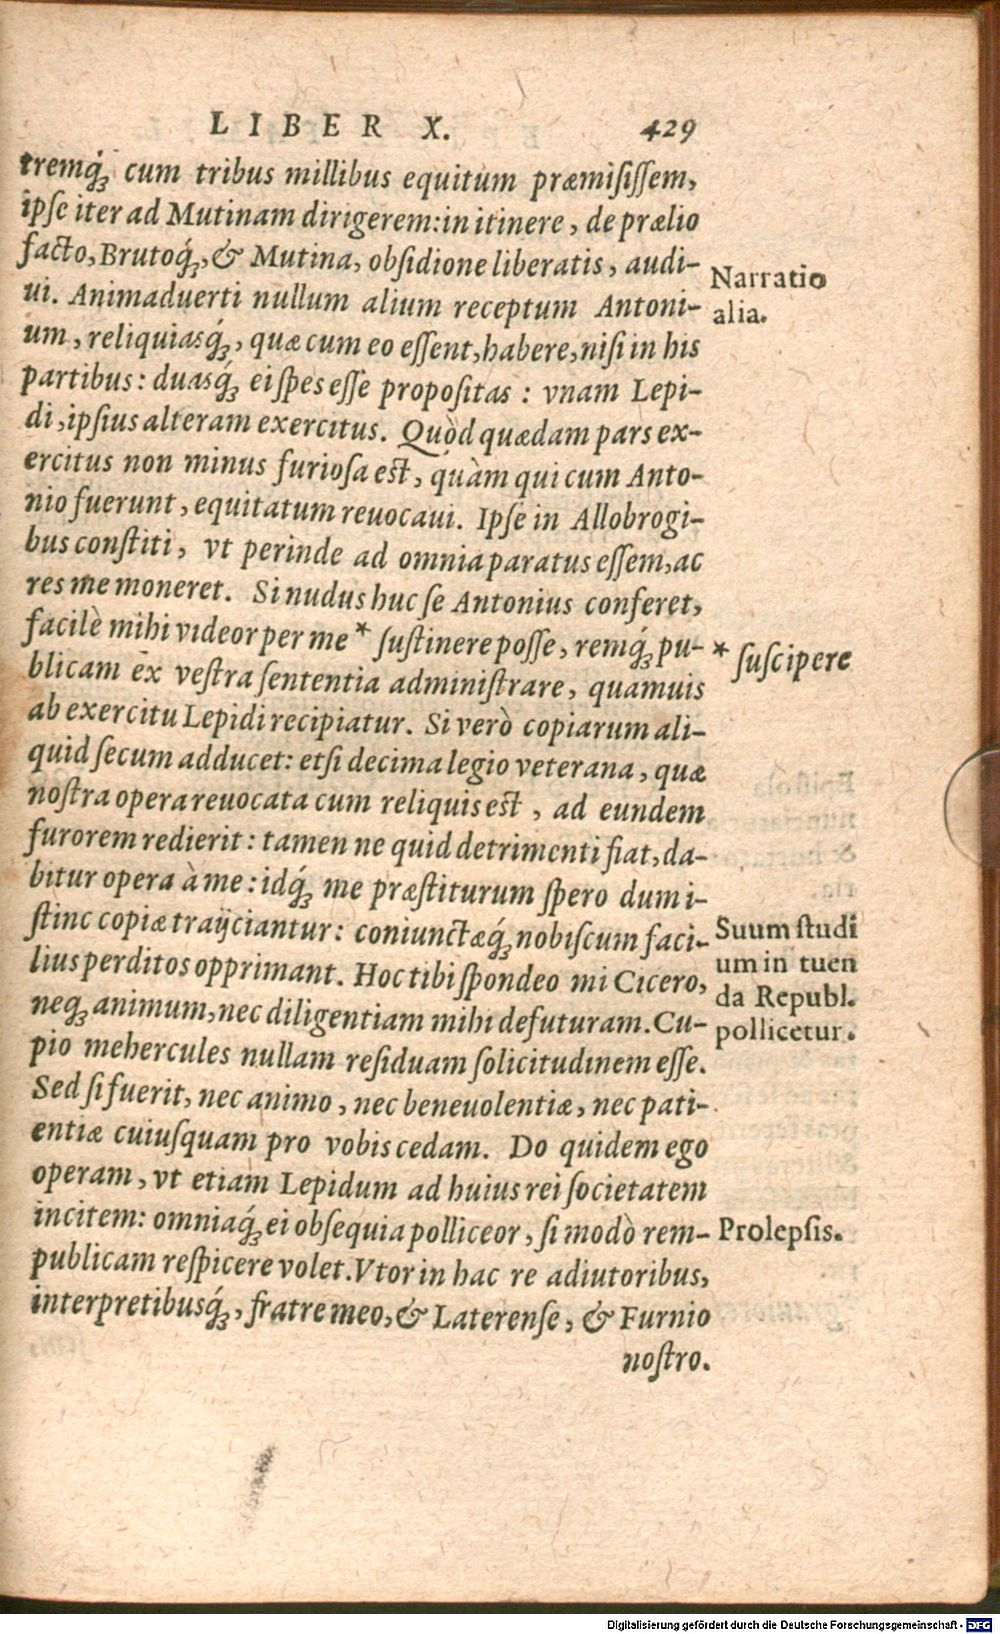 LIBER X. 429
tremq́ꝫ cum tribus millibus equitum præmiſiſſem,
ipſe iter ad Mutinam dirigerem: in itinere, de prælio
facto, Brutoq́ꝫ, & Mutina, obſidione liberatis, audi-
ui. Animaduerti nullum alium receptum Antoni-
um, reliquiasq́ꝫ, quæ cum eo eſſent, habere, niſi in his
partibus: duasq́ꝫ ei ſpes eſſe propoſitas: vnam Lepi-
di, ipſius alteram exercitus. Quòd quædam pars ex-
ercitus non minus furioſa eſt, quàm qui cum Anto-
nio fuerunt, equitatum reuocaui. Ipſe in Allobrogi-
bus conſtiti, vt perinde ad omnia paratus eſſem, ac
res me moneret. Si nudus huc ſe Antonius conferet,
facilè mihi videor per me * ſuſtinere poſſe, remq́ꝫ pu-
blicam ex veſtra ſententia adminiſtrare, quamuis
ab exercitu Lepidi recipiatur. Si verò copiarum ali-
quid ſecum adducet: etſi decima legio veterana, quæ
noſtra opera reuocata cum reliquis eſt, ad eundem
furorem redierit: tamen ne quid detrimenti fiat, da-
bitur opera à me: idq́ꝫ me præſtiturum ſpero dum i-
ſtinc copiæ traijciantur: coniunctæq́ꝫ nobiſcum faci-
lius perditos opprimant. Hoc tibi ſpondeo mi Cicero,
neqꝫ animum, nec diligentiam mihi defuturam. Cu-
pio mehercules nullam reſiduam ſolicitudinem eſſe.
Sed ſi fuerit, nec animo, nec beneuolentiæ, nec pati-
entiæ cuiuſquam pro vobis cedam. Do quidem ego
operam, vt etiam Lepidum ad huius rei ſocietatem
incitem: omniaq́ꝫ ei obſequia polliceor, ſi modò rem-
publicam reſpicere volet. Vtor in hac re adiutoribus,
interpretibusq́ꝫ, fratre meo, & Laterenſe, & Furnio
noſtro.
Narratio
alia.
* ſuſcipere
Suum ſtudi
um in tuen
da Republ.
pollicetur.
Prolepſis.
Digitalisierung gefördert durch die Deutsche Forschungsgemeinschaft - DFG